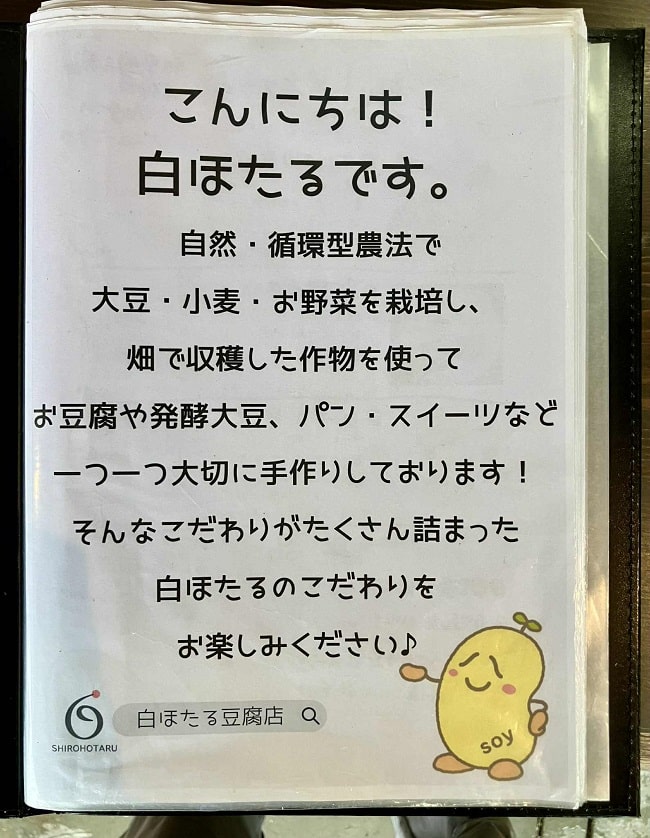 こんにちは！
白ほたるです。
自然・循環型農法で
大豆・小麦・お野菜を栽培し、
畑で収穫した作物を使って
お豆腐や発酵大豆、パン・スイーツなど
一つ一つ大切に手作りしております！
そんなこだわりがたくさん詰まった
白ほたるのこだわりを
お楽しみください♪
soy
白ほたる豆腐店
SHIROHOTARU